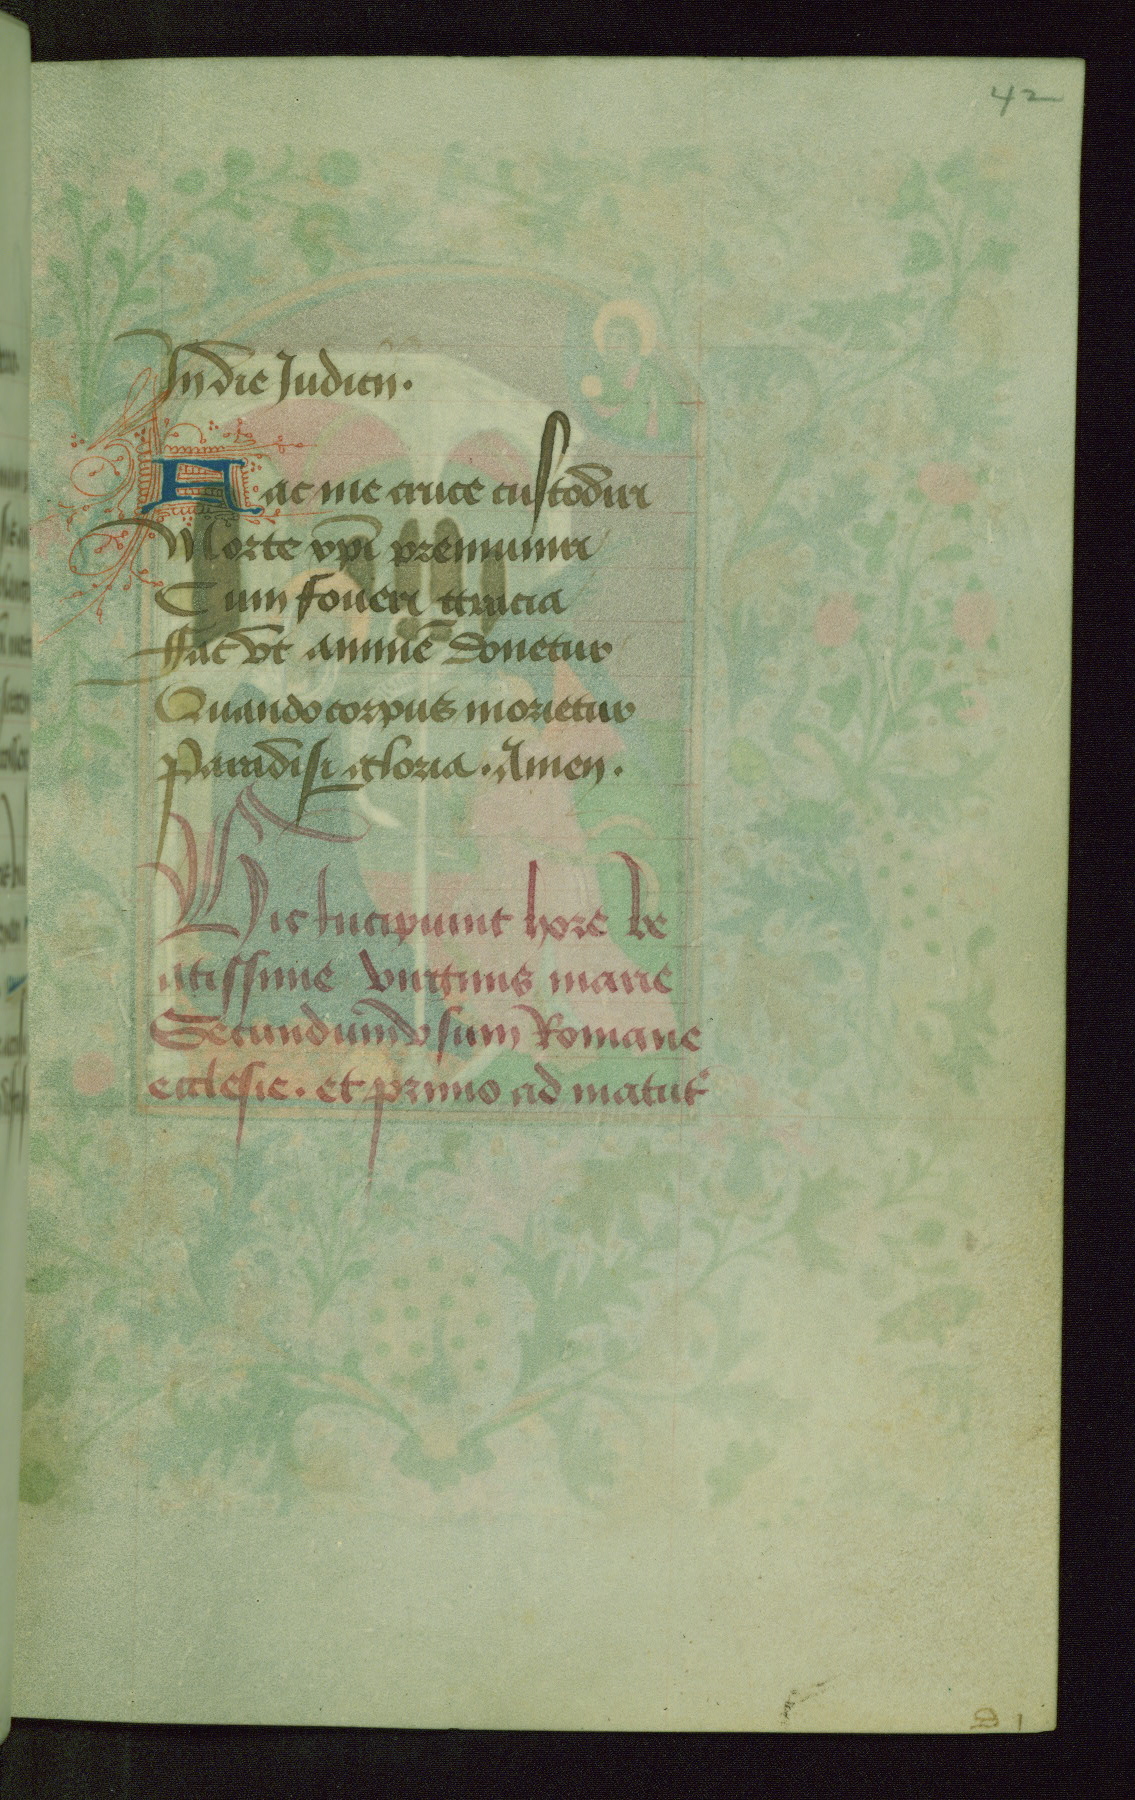 42
In die Judicii.
Hac me cruce custodiri
Morte xpi premuniri
Tum foueri gracia
ffac vt anime donetur
Quando corpus morietur
Paradisi gloria. Amen.
Hic Incipiunt hore be
atissime virginis marie
Secundum vsum Romane
ecclesie. et primo ad matut